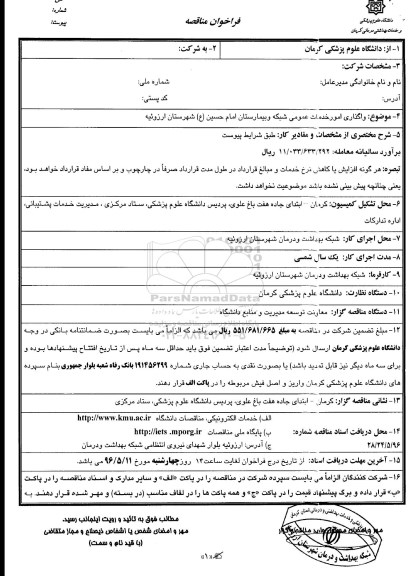 شماره:
پیوست:
دانشگاه علوم پزشکی
و خدمات بهداشتی درمانی کرمان
فراخوان مناقصه
۱- از: دانشگاه علوم پزشکی کرمان
۲- به شرکت:
۳- مشخصات شرکت:
نام و نام خانوادگی مدیرعامل:
شماره ملی:
آدرس:
کد پستی:
۴- موضوع: واگذاری امورخدمات عمومی شبکه وبیمارستان امام حسین (ع) شهرستان ارزوئیه
۵- شرح مختصری از مشخصات و مقادیر کار: طبق شرایط پیوست
برآورد سالیانه معامله: ۱۱/۰۳۳/۶۳۳/۲۹۲ ریال
تبصره: هر گونه افزایش یا کاهش نرخ خدمات و مبالغ قرارداد در طول مدت قرارداد صرفاً در چارچوب و بر اساس مفاد قرارداد خواهد بود،
یعنی چنانچه پیش بینی نشده باشد موضوعیت نخواهد داشت.
۶- محل تشکیل کمیسیون: کرمان - ابتدای جاده هفت باغ علوی، پردیس دانشگاه علوم پزشکی، ستاد مرکزی ، مدیریت خدمات پشتیبانی،
اداره تدارکات
۷- محل اجرای کار: شبکه بهداشت ودرمان شهرستان ارزوئیه
۸- مدت اجرای کار: یک سال شمسی
۹- کارفرما: شبکه بهداشت ودرمان شهرستان ارزوئیه
۱۰- دستگاه نظارت: دانشگاه علوم پزشکی کرمان
۱۱- دستگاه مناقصه گزار: معاونت توسعه مدیریت و منابع دانشگاه
۱۲- مبلغ تضمین شرکت در مناقصه به مبلغ ۵۵۱/۶۸۱/۶۶۵ ریال می باشد که الزاماً می بایست بصورت ضمانتنامه بانکی در وجه
دانشگاه علوم پزشکی کرمان ارسال شود (توضیحاً مدت اعتبار تضمین فوق باید حداقل سه ماه پس از تاریخ افتتاح پیشنهادها بوده و
برای سه ماه دیگر نیز قابل تمدید باشد) یا بصورت نقدی به حساب جاری شماره ۱۹۱۴۵۶۲۹۹ بانک رفاه شعبه بلوار جمهوری بنام سپرده
های دانشگاه علوم پزشکی کرمان واریز و اصل فیش مربوطه را در پاکت الف قرار دهند.
۱۳- نشانی مناقصه گزار: کرمان - ابتدای جاده هفت باغ علوی، پردیس دانشگاه علوم پزشکی، ستاد مرکزی
۱۴- محل دریافت اسناد مناقصه شماره:
۲۸/۲۴/۵/۹۶
الف) خدمات الکترونیکی، مناقصات دانشگاه http://www.kmu.ac.ir
ب) پایگاه ملی مناقصات http://iets .mporg.ir
ج) آدرس: ارزوئیه بلوار شهدای نیروی انتظامی شبکه بهداشت ودرمان
۱۵- آخرین مهلت دریافت اسناد: از تاریخ درج فراخوان لغایت ساعت ۱۴ روز چهارشنبه مورخ ۹۶/۵/۱۱ می باشد.
۱۶- شرکت کنندگان الزاماً می بایست سپرده شرکت در مناقصه را در پاکت «الف» و سایر مدارک و اسناد مناقصه را در پاکت
«ب» قرار داده و برگ پیشنهاد قیمت را در پاکت «ج» و همه پاکت ها را در لفاف مناسب (در بسته) و مهر شده قرار دهند. به
مطالب فوق به تائید و رویت اینجانب رسید.
مهر و امضای شخص یا اشخاص ذیصلاح و مجاز متقاضی
(با قید نام و سمت)
ParsNamadData